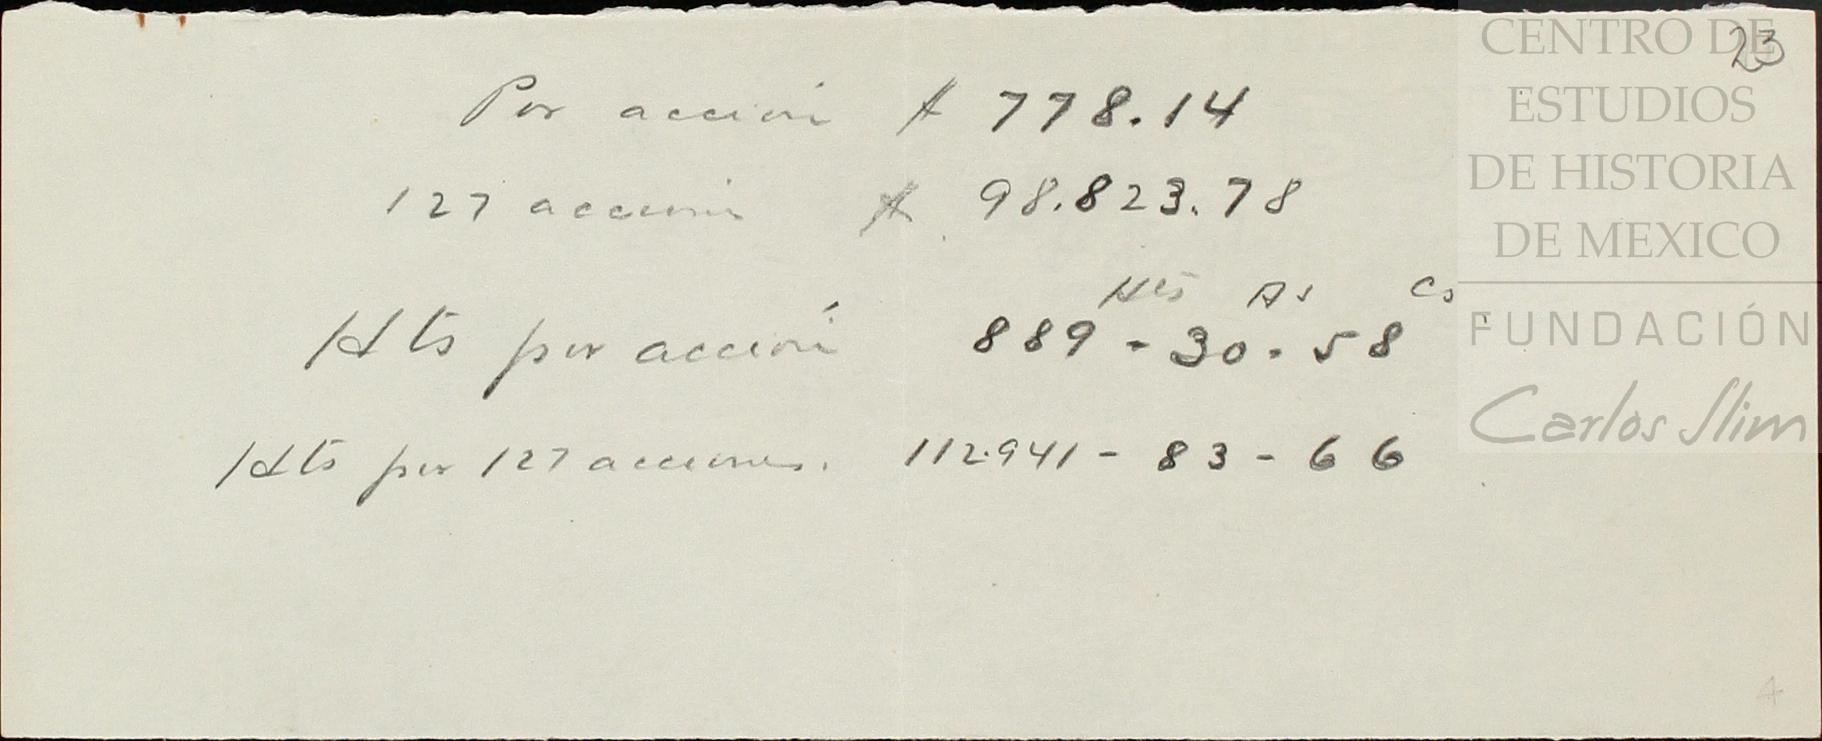 23
Por acción $ 778.14
127 acciones $ 98.823.78
Hts As Cs
Hts por acción 889 - 30 - 58
Hts por 127 acciones. 112.941 - 83 - 66
4
CENTRO DE
ESTUDIOS
DE HISTORIA
DE MEXICO
FUNDACIÓN
Carlos Slim